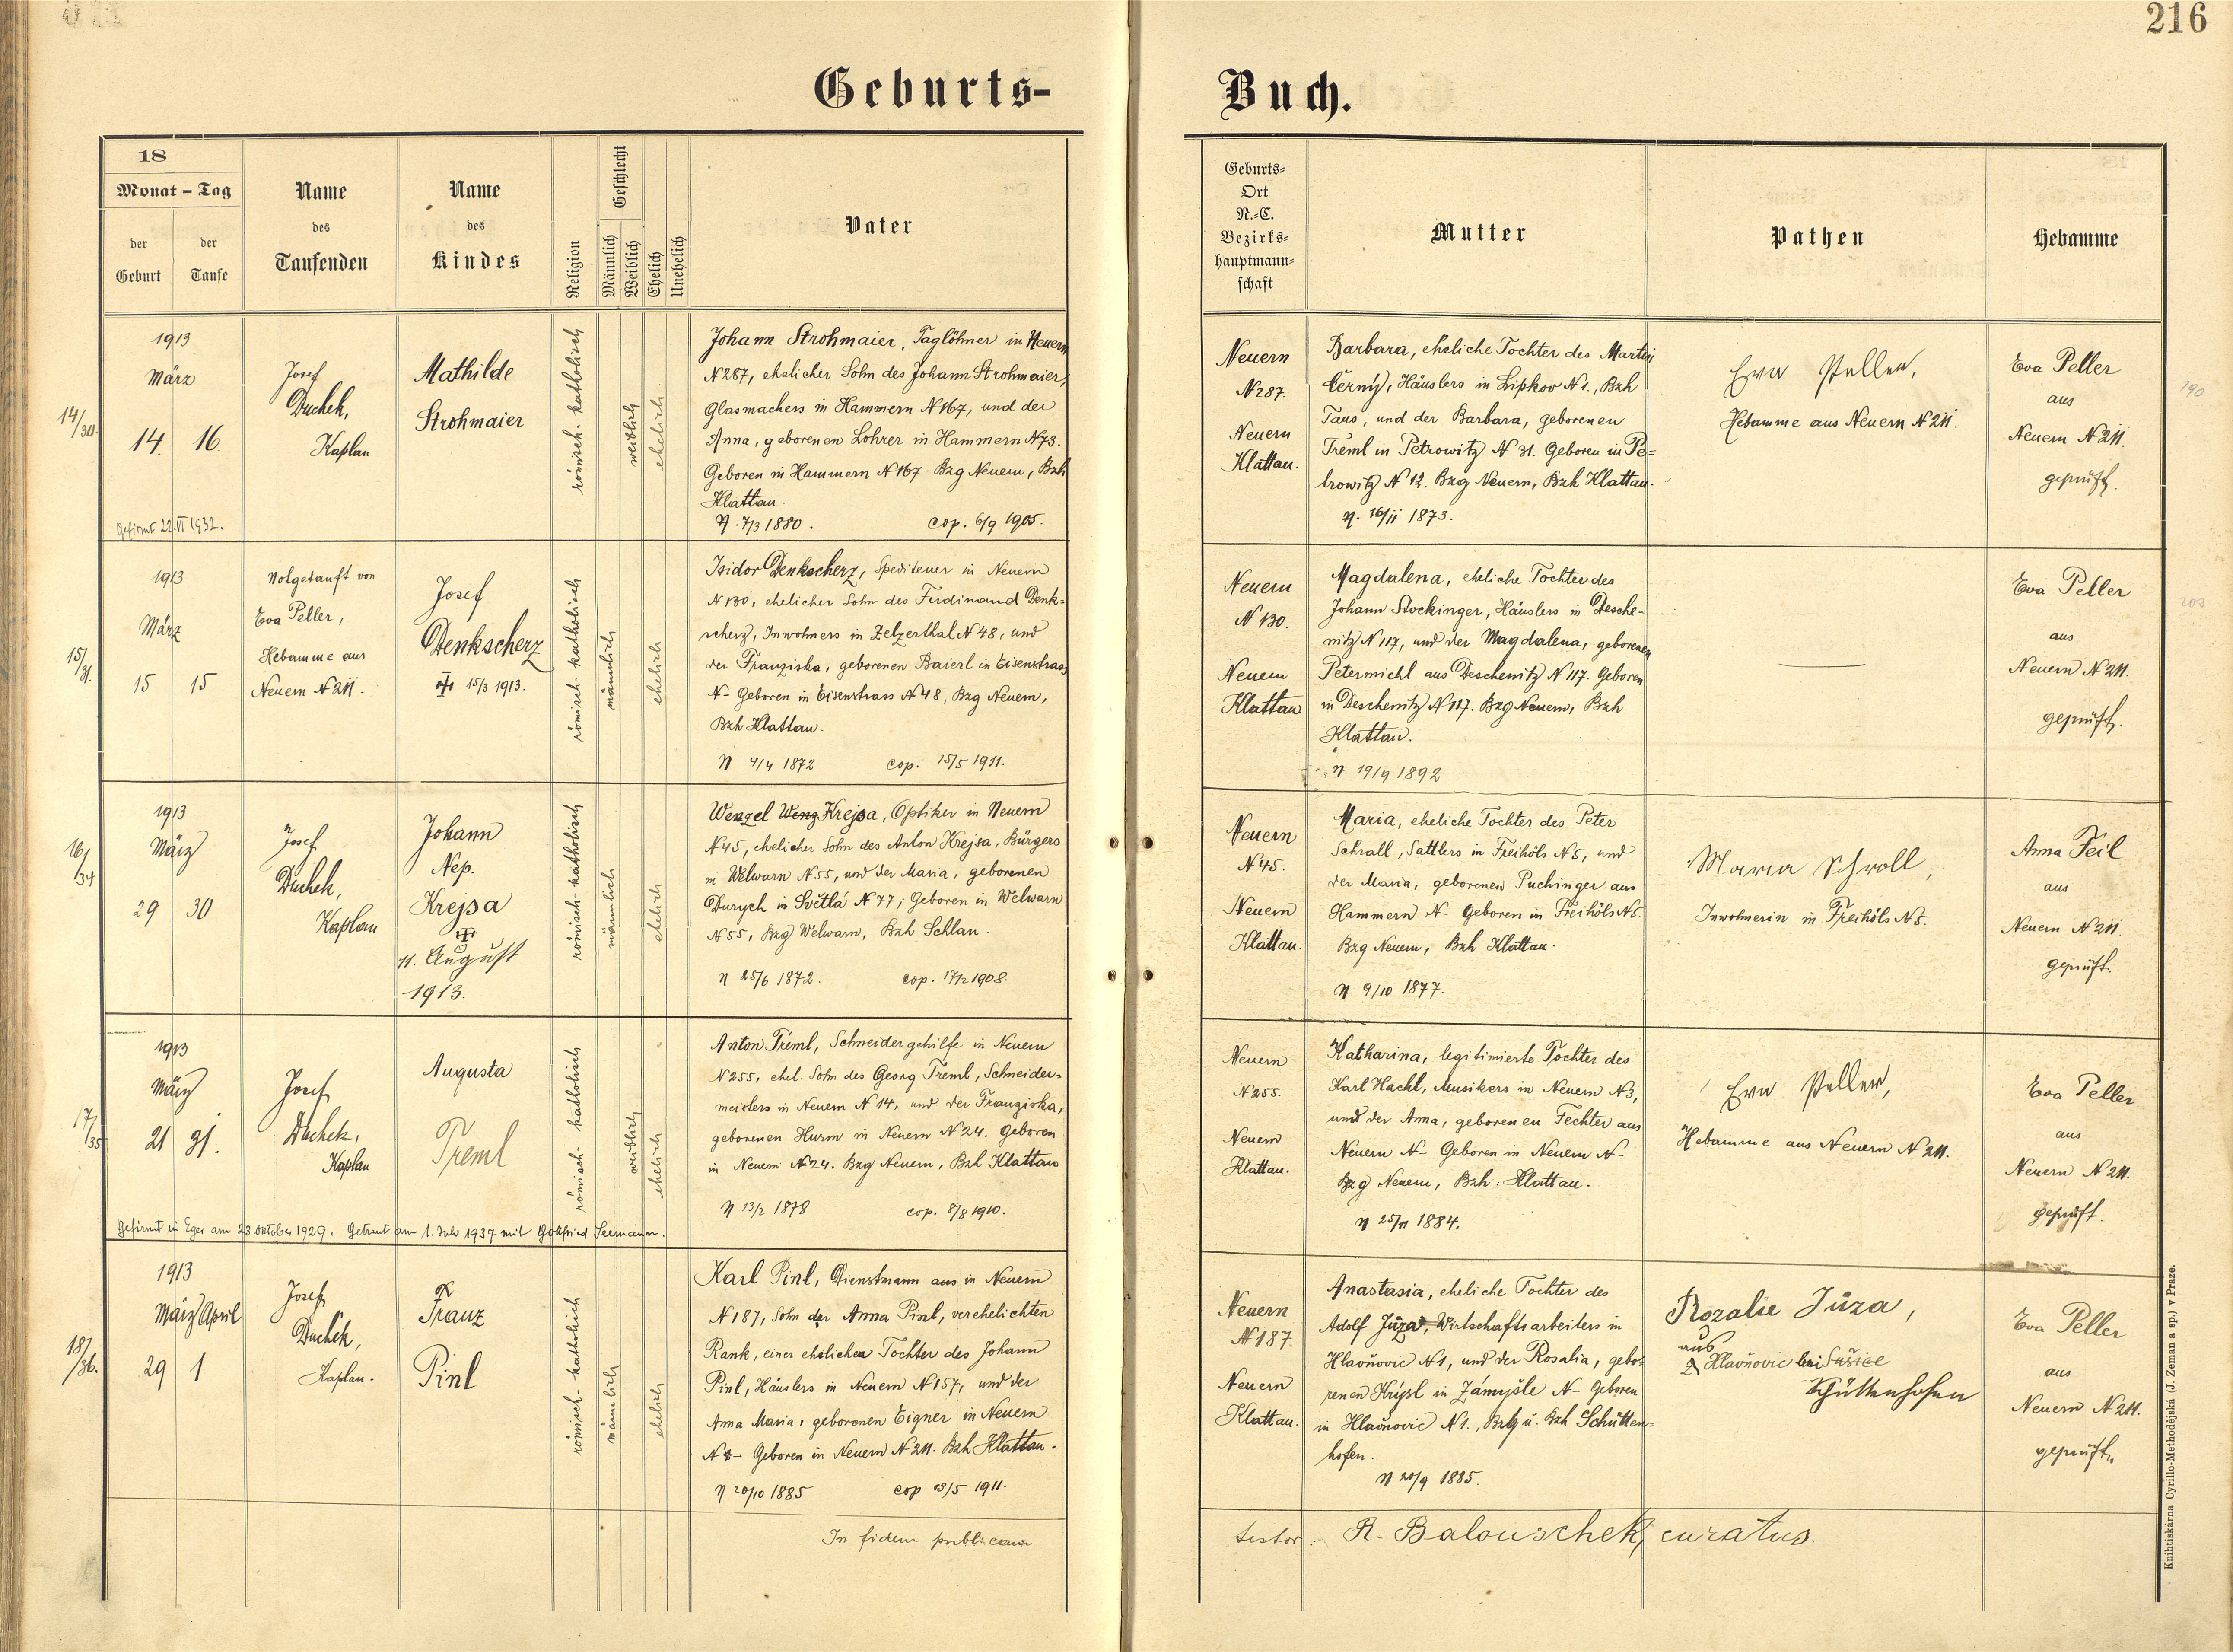 216
Geburts-
Buch.
18
Monat - Tag
der Geburt
der Taufe
Name des Taufenden
Name des Kindes
Religion
Geschlecht
Männlich
Weiblich
Ehelich
Unehelich
Vater
Geburts-
Ort
N.-C.
Bezirks-
hauptmann-
schaft
Mutter
Pathen
Hebamme
14/30.
1913
März
14. 16.
Gefirmt 22.VI 1932.
Josef
Duchek,
Kaplan
Mathilde
Strohmaier
römisch-katholisch
weiblich
ehelich
Johann Strohmaier, Taglöhner in Neuern
N 287, ehelicher Sohn des Johann Strohmaier,
Glasmachers in Hammern N 167, und der
Anna, geborenen Lohrer in Hammern N 73.
Geboren in Hammern N 167. Bzg Neuern, Bzh
Klattau.
N. 7/3 1880. cop. 6/9 1905.
Neuern
N 287.
Neuern
Klattau.
Barbara, eheliche Tochter des Martin
Černý, Häuslers in Lipkov N 1., Bzh
Taus, und der Barbara, geborenen
Treml in Petrowitz N 31. Geboren in Pe=
trowitz N 12. Bzg Neuern, Bzh Klattau.
N. 16/11 1873.
Eva Peller,
Hebamme aus Neuern N 211.
Eva Peller
aus
Neuern N 211.
geprüft.
190
15/31.
1913
März
15 15
Notgetauft von
Eva Peller,
Hebamme aus
Neuern N 211.
Josef
Denkscherz
15/3 1913.
römisch-katholisch
männlich
ehelich
Isidor Denkscherz, Spediteuer in Neuern
N 130, ehelicher Sohn des Ferdinand Denk=
scherz, Inwohners in Zelzerthal N 48, und
der Franziska, geborenen Baierl in Eisenstrass
N- Geboren in Eisenstrass N 48, Bzg Neuern,
Bzh Klattau.
N 4/4 1872 cop. 15/5 1911.
Neuern
N 130.
Neuern
Klattau
Magdalena, eheliche Tochter des
Johann Stockinger, Häuslers in Desche-
nitz N 117, und der Magdalena, geborenen
Petermichl aus Deschenitz N 117. Geboren
in Deschenitz N 117. Bzg Neuern, Bzh
Klattau.
N 19/9 1892
Eva Peller
aus
Neuern N 211.
geprüft.
203
16/34
1913
März
29 30
Josef
Duchek,
Kaplan
Johann
Nep.
Krejsa
11. August
1913.
römisch-katholisch
männlich
ehelich
Wenzel Wenz Krejsa, Optiker in Neuern
N 45, ehelicher Sohn des Anton Krejsa, Bürgers
in Welwarn N 55, und der Maria, geborenen
Durych in Světlá N 77; Geboren in Welwarn
N 55, Bzg Welwarn, Bzh Schlan.
N 25/6 1872. cop. 17/2 1908.
Neuern
N 45.
Neuern
Klattau.
Maria, eheliche Tochter des Peter
Schrall, Sattlers in Freihöls N 5, und
der Maria, geborenen Puchinger aus
Hammern N- Geboren in Freihöls N 5.
Bzg Neuern, Bzh Klattau.
N 9/10 1877.
Maria Schroll,
Inwohnerin in Freihöls N 5.
Anna Feil
aus
Neuern N 211.
geprüft.
17/35
1913
März
21 31.
Josef
Duchek,
Kaplan
Augusta
Treml
römisch-katholisch
weiblich
ehelich
Anton Treml, Schneidergehilfe in Neuern
N 255, ehel. Sohn des Georg Treml, Schneider=
meisters in Neuern N 14, und der Franziska,
geborenen Hurm in Neuern N 24. Geboren
in Neuern N 24. Bzg Neuern, Bzh Klattau
N 13/2 1878 cop. 8/8 1910.
Gefirmt in Eger am 23 Oktober 1929. Getraut am 1. Juli 1937 mit Gottfried Seemann.
Neuern
N 255.
Neuern
Klattau.
Katharina, legitimierte Tochter des
Karl Hackl, Musikers in Neuern N 3,
und der Anna, geborenen Fechter aus
Neuern N- Geboren in Neuern N-
Bzg Neuern, Bzh. Klattau.
N 25/11 1884.
Eva Peller,
Hebamme aus Neuern N 211.
Eva Peller
aus
Neuern N 211.
geprüft.
18/36.
1913
März April
29 1
Josef
Duchek,
Kaplan.
Franz
Pinl
römisch-katholisch
männlich
ehelich
Karl Pinl, Dienstmann aus in Neuern
N 187, Sohn der Anna Pinl, verehelichten
Rank, einer ehelichen Tochter des Johann
Pinl, Häuslers in Neuern N 157, und der
Anna Maria, geborenen Eigner in Neuern
N - Geboren in Neuern N 211. Bzh Klattau.
N 20/10 1885 cop /5 1911.
Neuern
N 187.
Neuern
Klattau.
Anastasia, eheliche Tochter des
Adolf Jůza, Wirtschaftsarbeiters in
Hlavňovic N 1, und der Rosalia, gebo=
renen Krýsl in Zámyšle N- Geboren
in Hlavňovic N 1., Bzg u. Bzh Schütten=
hofen.
N 20/9 1885.
Rozalie Jůza,
aus
z Hlavňovic bei Sušice
Schüttenhofen
Eva Peller
aus
Neuern N 211.
geprüft.
In fidem publicam
testor: R. Balouschek, curatus.
Knihtiskárna Cyrillo-Methodějská (J. Zeman a sp.) v Praze.